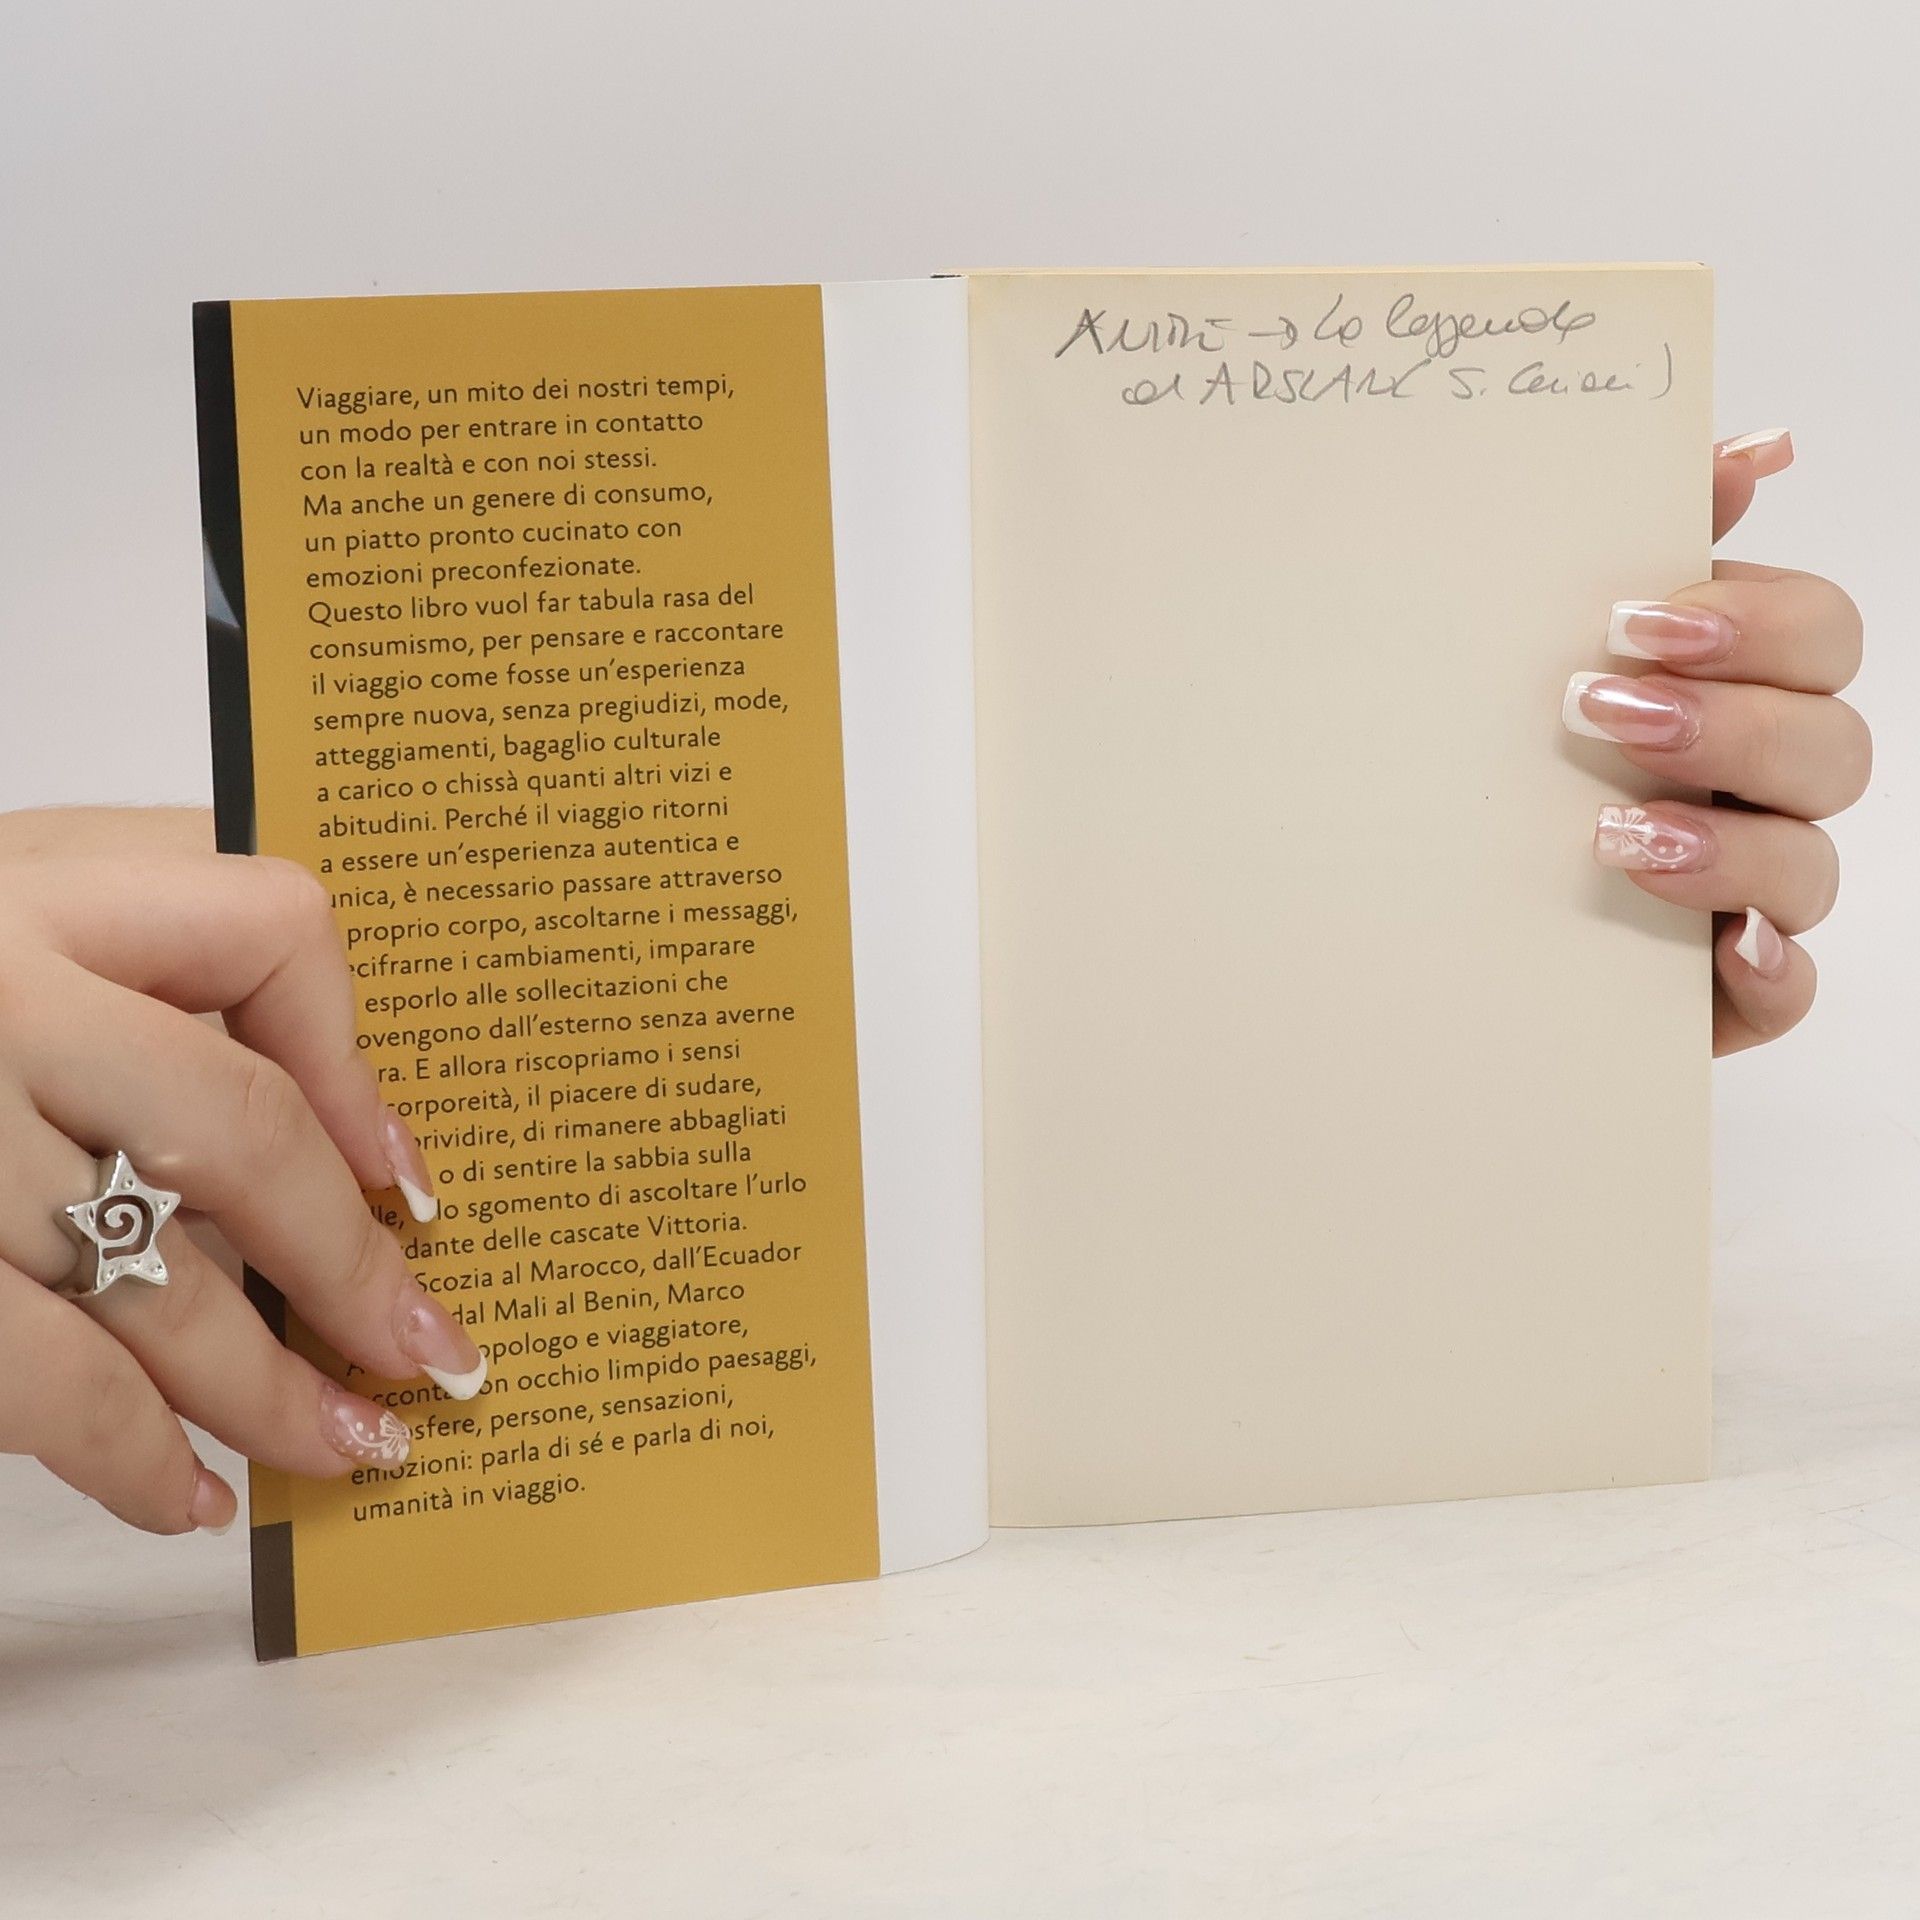 Viaggiare, un mito dei nostri tempi,
un modo per entrare in contatto
con la realtà e con noi stessi.
Ma anche un genere di consumo,
un piatto pronto cucinato con
emozioni preconfezionate.
Questo libro vuol far tabula rasa del
consumismo, per pensare e raccontare
il viaggio come fosse un'esperienza
sempre nuova, senza pregiudizi, mode,
atteggiamenti, bagaglio culturale
a carico o chissà quanti altri vizi e
abitudini. Perché il viaggio ritorni
a essere un'esperienza autentica e
unica, è necessario passare attraverso
proprio corpo, ascoltarne i messaggi,
cifrarne i cambiamenti, imparare
esporlo alle sollecitazioni che
ovengono dall'esterno senza averne
ra. E allora riscopriamo i sensi
corporeità, il piacere di sudare,
rividire, di rimanere abbagliati
o di sentire la sabbia sulla
lle, lo sgomento di ascoltare l'urlo
dante delle cascate Vittoria.
Scozia al Marocco, dall'Ecuador
dal Mali al Benin, Marco
opologo e viaggiatore,
ccont on occhio limpido paesaggi,
osfere, persone, sensazioni,
emozioni: parla di sé e parla di noi,
umanità in viaggio.
→ La leggenda
di ARSLAN ( S.